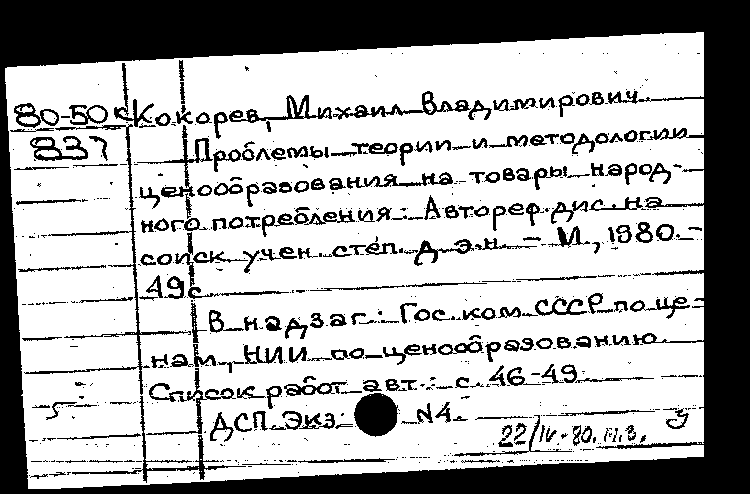 80-50к Кокорев, Михаил Владимирович
837 Проблемы теории и методологии
ценообразования на товары народ-
ного потребления: Автореф. дис. на
соиск. учен. степ. д.э.н. – М., 1980. –
49с
В надзаг.: Гос. ком. СССР по це-
нам, НИИ по ценообразованию.
Список работ авт.: с. 46-49.
ДСП. Экз. N4.
22/IV-80.